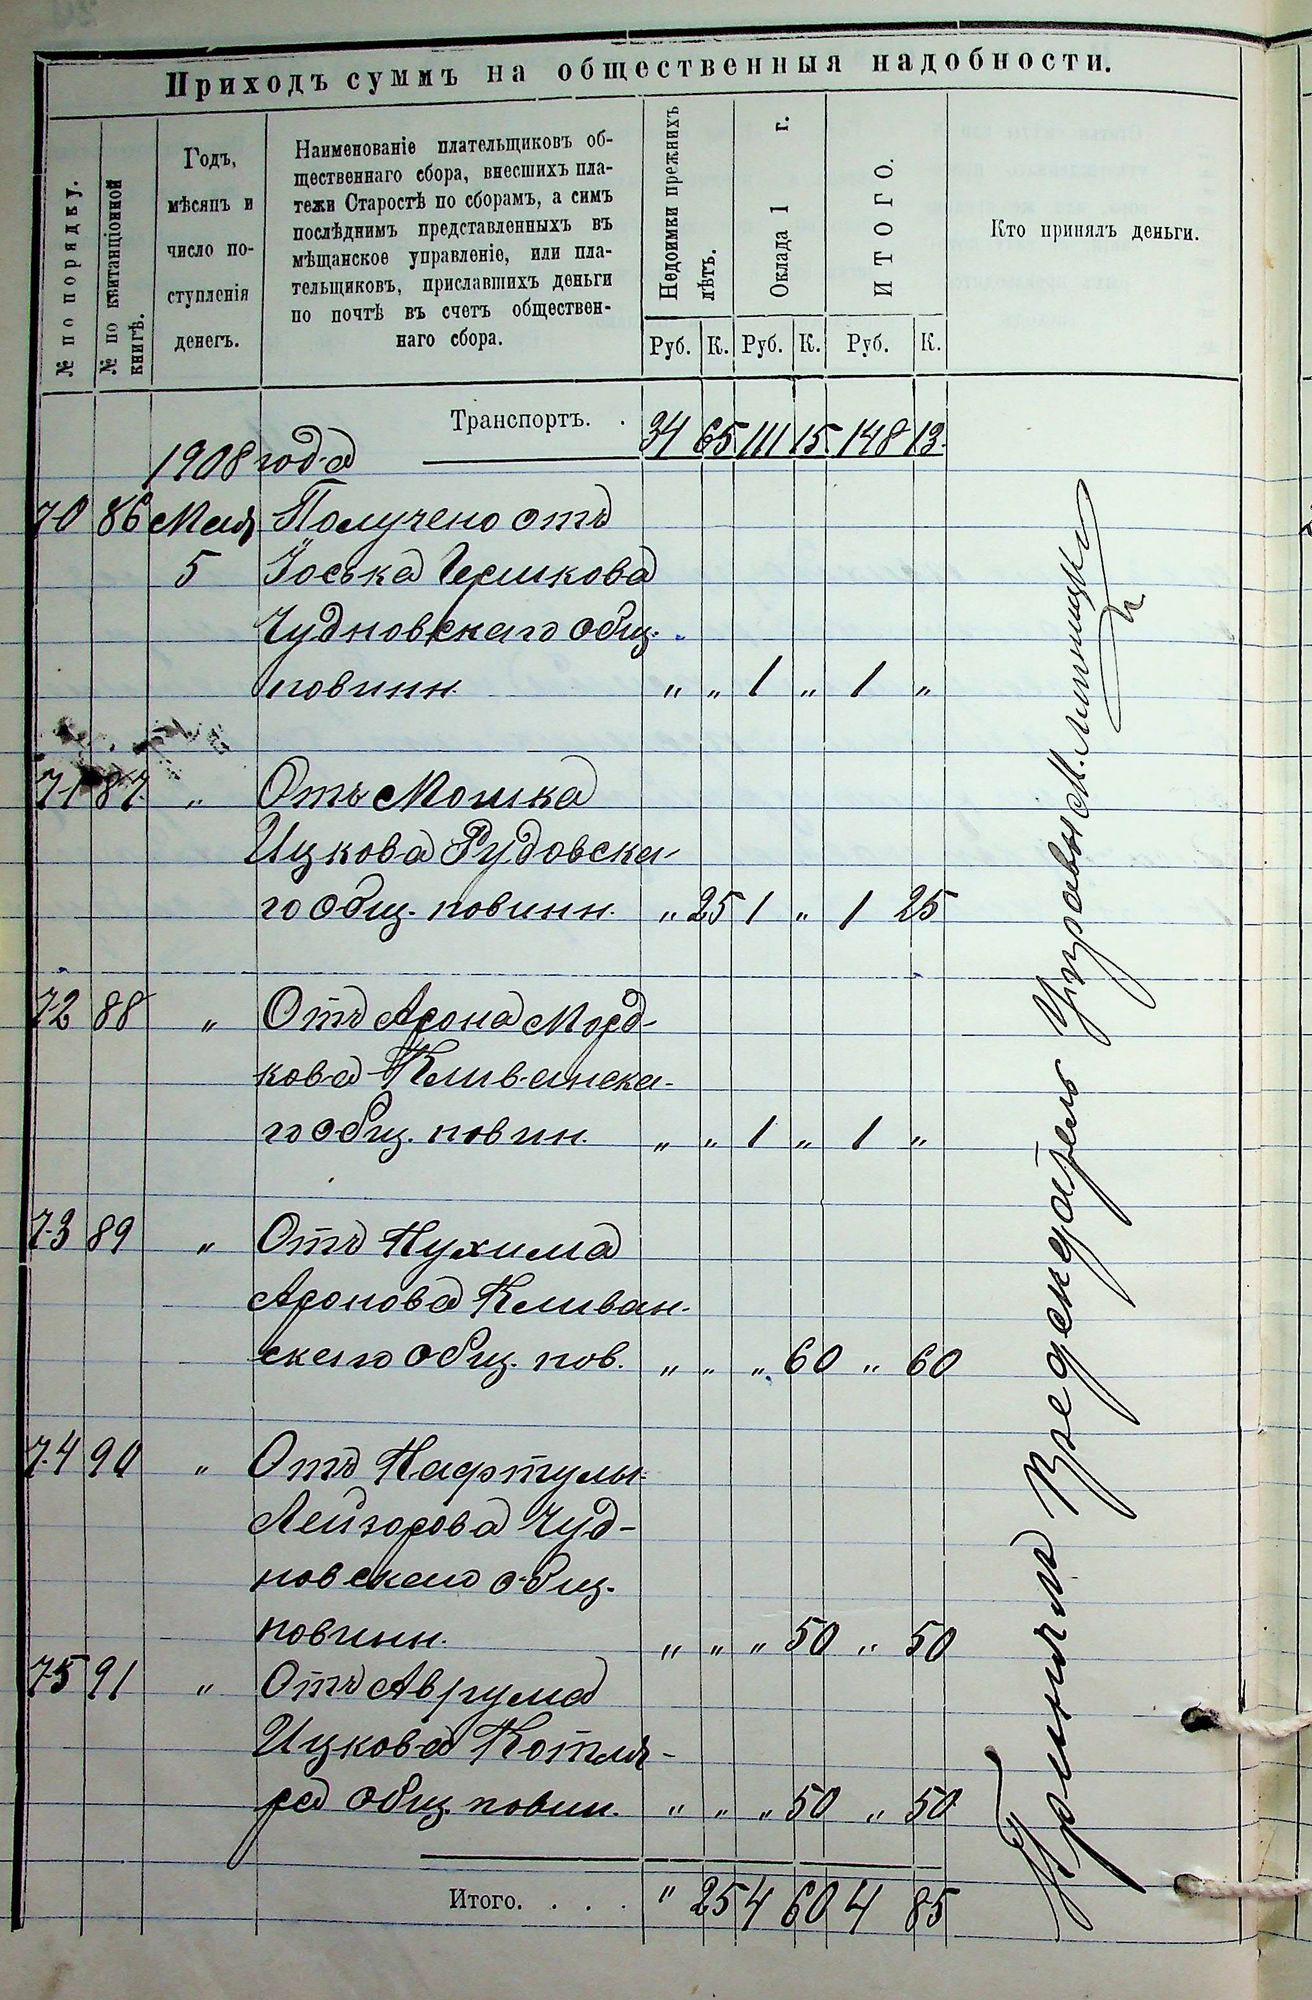 Приходъ суммъ на общественныя надобности.
№ по порядку.
№ по квитанціонной
книгѣ.
Годъ,
мѣсяцъ и
число по-
ступленія
денегъ.
Наименованіе плательщиковъ об-
щественнаго сбора, внесшихъ пла-
тежи Старостѣ по сборамъ, а симъ
послѣднимъ представленныхъ въ
мѣщанское управленіе, или пла-
тельщиковъ, приславшихъ деньги
по почтѣ въ счетъ обществен-
наго сбора.
Недоимки прежнихъ
лѣтъ.
Оклада 1 г.
ИТОГО.
Кто принялъ деньги.
Руб. К. Руб. К. Руб. К.
Транспортъ. . 34 65 111 15 148 13
1908 года
70 86 Мая Получено отъ
5 Іоська Гершкова
Чудновскаго общ.
повинн. " " 1 " 1 "
71 87 " Отъ Мошка
Ицкова Рудовска-
го общ. повинн. " 25 1 " 1 25
72 88 " Отъ Арона Морд-
кова Кливанска-
го общ. повин. " " 1 " 1 "
73 89 " Отъ Нухима
Аронова Кливан-
скаго общ. пов. " " " 60 " 60
74 90 " Отъ Нафтулы
Лейзорова Чуд-
новскаго общ.
повинн. " " " 50 " 50
75 91 " Отъ Аврума
Ицкова Котля-
ра общ. повин. " " " 50 " 50
Итого. . . . " 25 4 60 4 85
Принялъ Предсѣдатель Управы М.